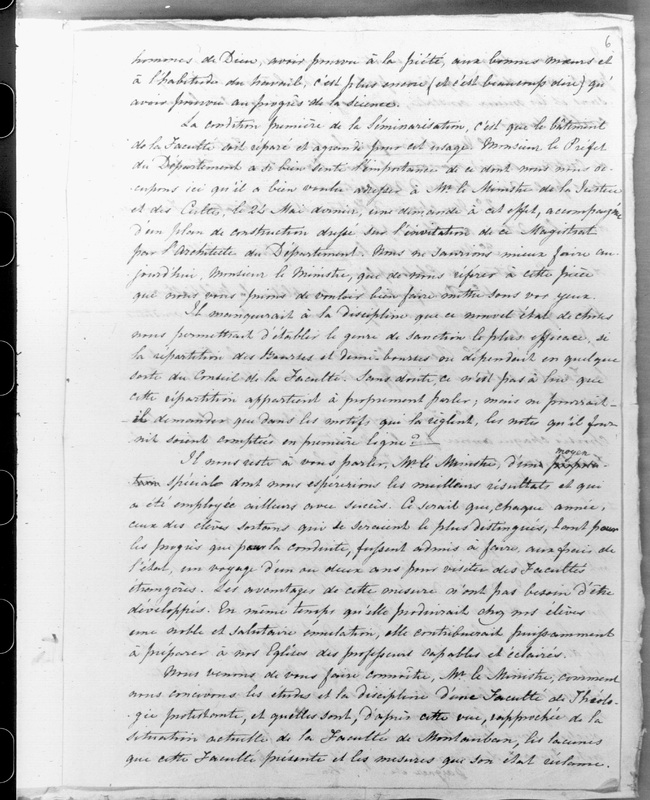 6
hommes de Dieu, avoir pourvu à la piété, aux bonnes mœurs et
à l'habitude du travail, c'est plus encore (et c'est beaucoup dire) qu'
avoir pourvu au progrès de la science.
La condition première de la Séminarisation, c'est que le bâtiment
de la Faculté soit réparé et agrandi pour cet usage. Monsieur le Préfet
du Département a si bien senti l'importance de ce dont nous nous oc-
cupons ici qu'il a bien voulu adresser à Mr. le Ministre de la Justice
et des Cultes, le 24 Mai dernier, une demande à cet effet, accompagnée
d'un plan de construction dressé sur l'invitation de ce Magistrat
par l'Architecte du Département. Nous ne saurions mieux faire au-
jourd'hui, Monsieur le Ministre, que de nous référer à cette pièce
que nous vous prions de vouloir bien faire mettre sous vos yeux.
Il manquerait à la discipline que ce nouvel état de choses
nous permettrait d'établir le genre de sanction le plus efficace, si
la répartition des Bourses et demi-bourses ne dépendait en quelque
sorte du Conseil de la Faculté. Sans doute ce n'est pas à lui que
cette répartition appartient à proprement parler; mais ne pourrait-
il demander que dans les motifs qui la règlent, les notes qu'il four-
nit soient comptées en première ligne?
Il nous reste à vous parler, Mr. le Ministre, d'un moyen
spécial dont nous espérerions les meilleurs résultats et qui
a été employé ailleurs avec succès. Ce serait que, chaque année,
ceux des élèves sortans qui se seraient le plus distingués, tant pour
les progrès que pour la conduite, fussent admis à faire, aux frais de
l'état, un voyage d'un ou deux ans pour visiter des Facultés
étrangères. Les avantages de cette mesure n'ont pas besoin d'être
développés. En même temps qu'elle produirait chez nos élèves
une noble et salutaire émulation, elle contribuerait puissamment
à préparer à nos Eglises des professeurs capables et éclairés.
Nous venons de vous faire connoître, Mr. le Ministre, comment
nous concevons les études et la discipline d'une Faculté de Théolo-
gie protestante, et quelles sont, d'après cette vue, rapprochée de la
situation actuelle de la Faculté de Montauban, les lacunes
que cette Faculté présente et les mesures que son état réclame.